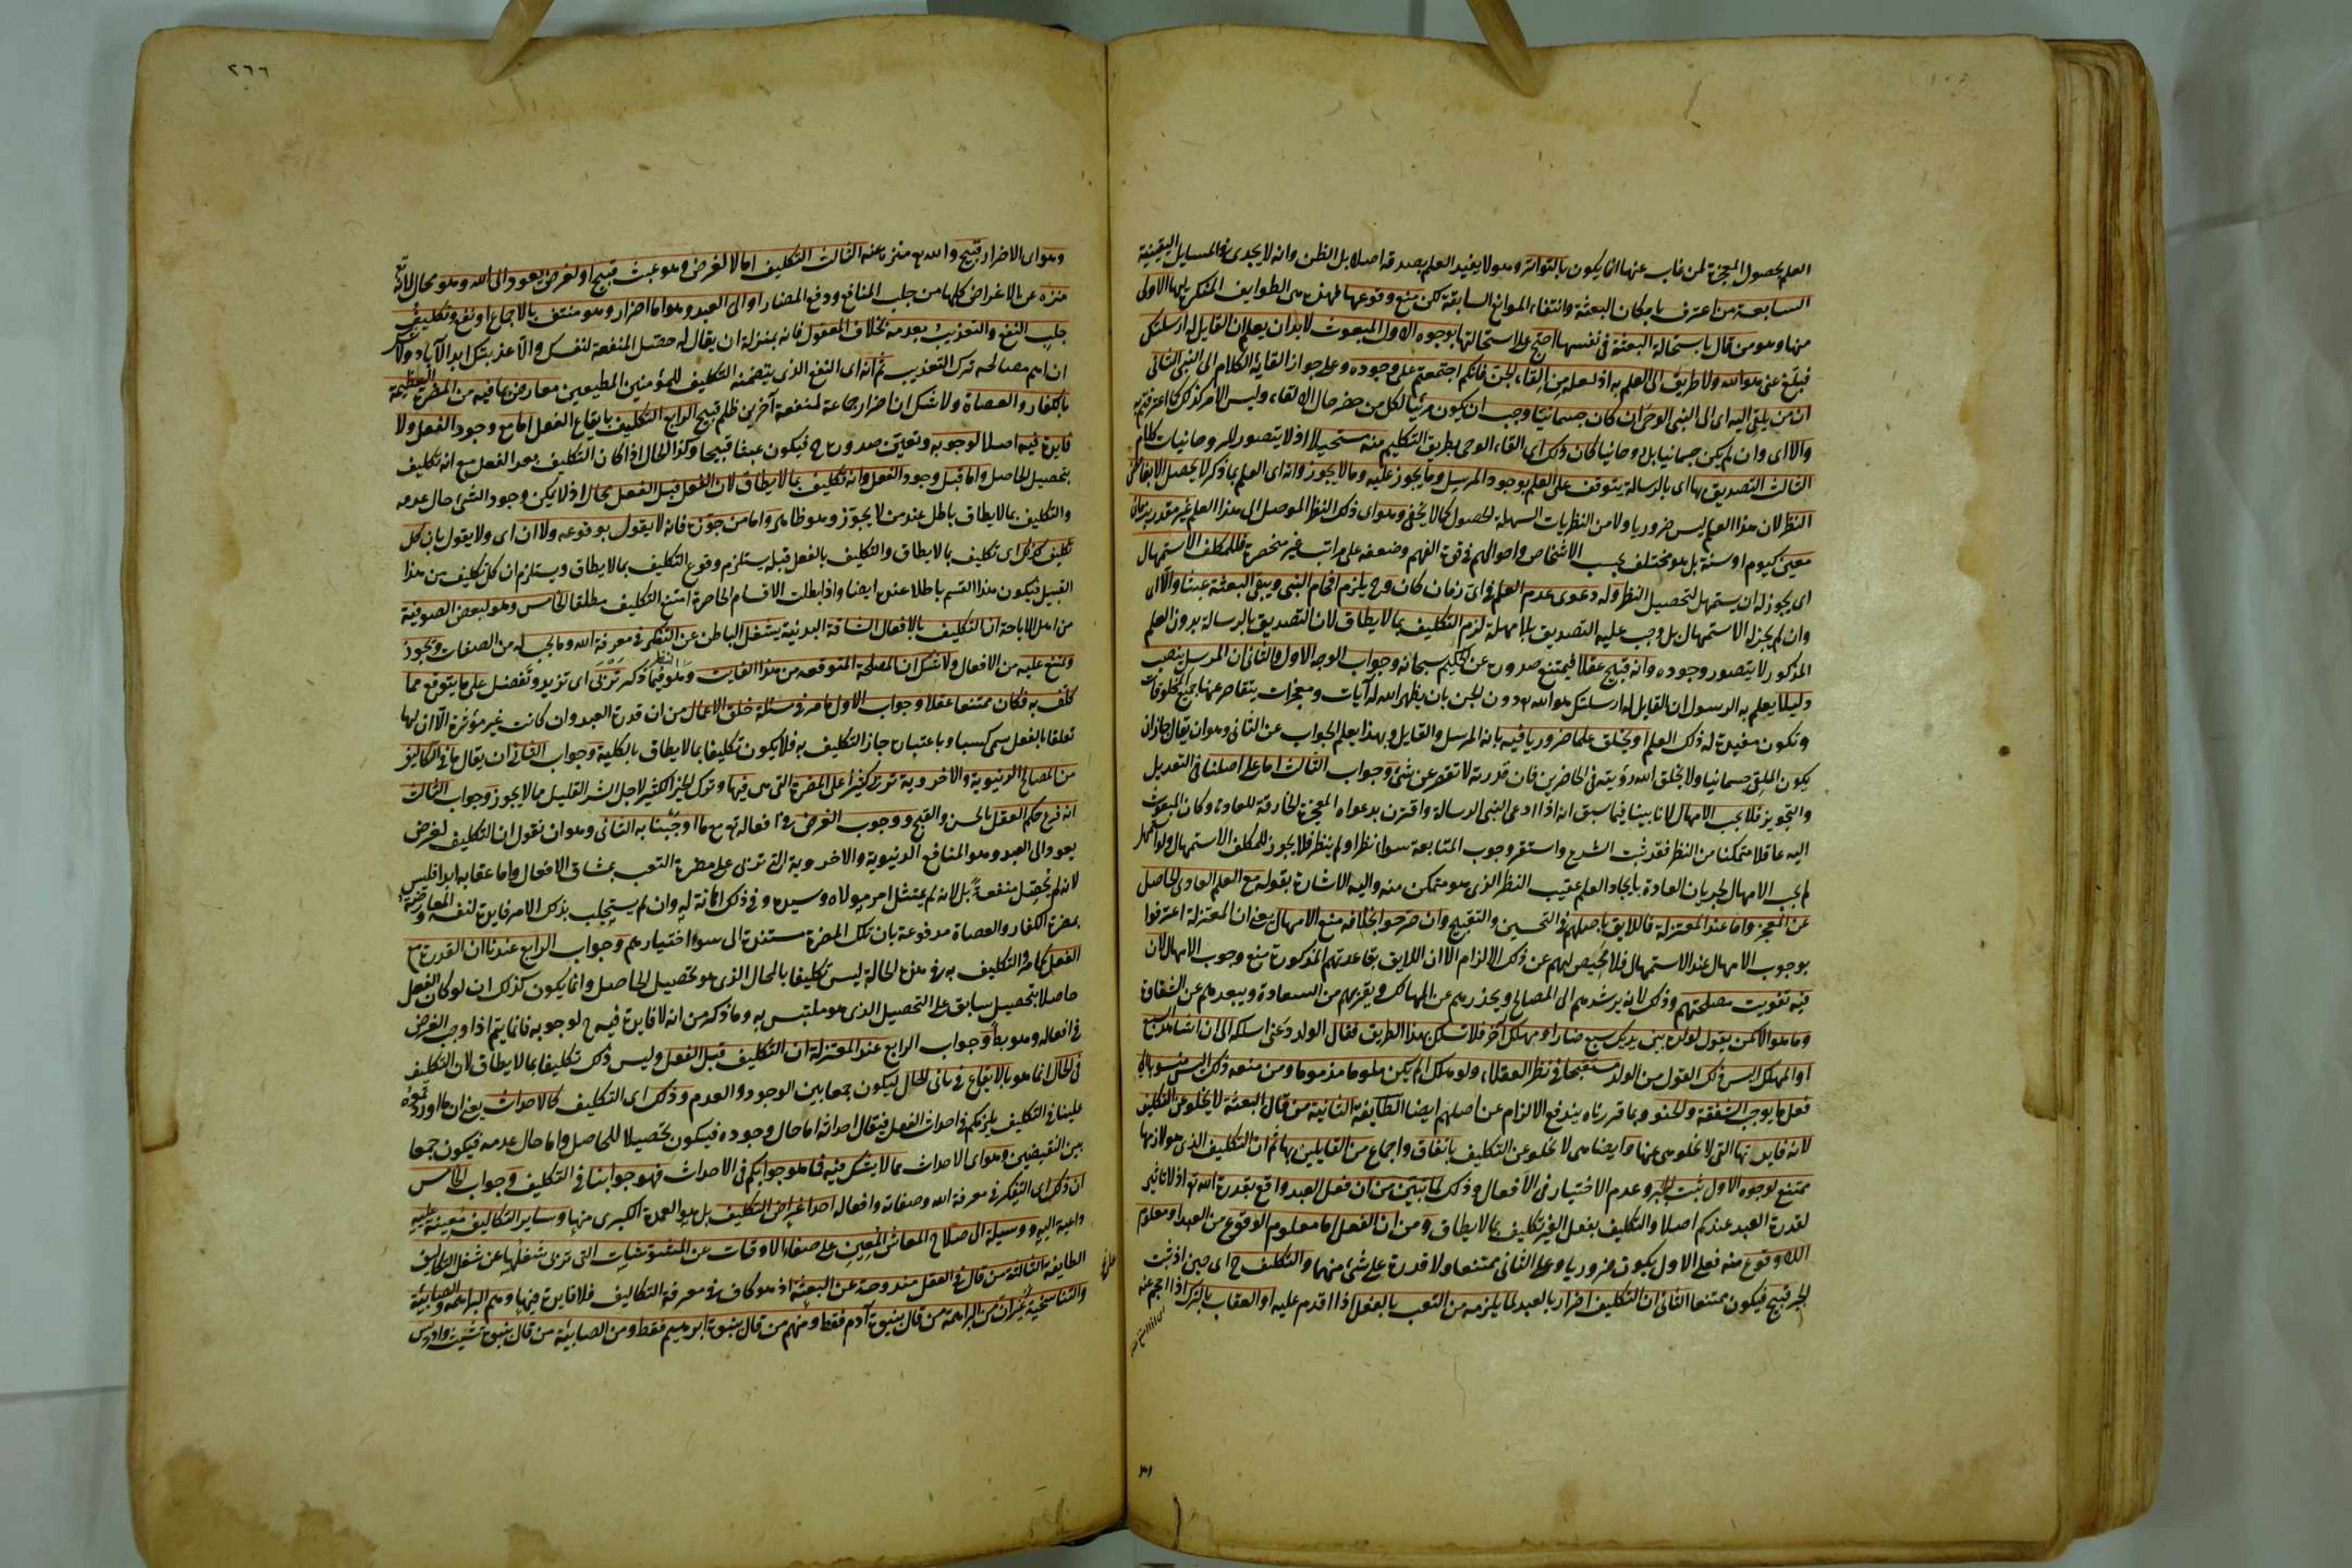 العلم بحصول المعجزة لمن غاب عنها انما يكون بالتواتر وهو لا يفيد العلم بصدقه اصلا بل الظن وانه لا يجدى في المسايل اليقينية
السابعة من اعترف بامكان البعثة وانتفاء الموانع السابقة لكن منع وقوعها فهذه هى الطوايف المنكرين لها الاولى
منها وهو من قال باستحالة البعثة في نفسها احتج على استحالتها بوجوه الاول المبعوث لابد ان يعلم ان القايل له ارسلتك
فبلغ عنى هو الله ولا طريق الى العلم به اذ لعله من القاء الجن فانكم اجتمعتم على وجوده وعلى جواز القايه الكلام الى النبى الثانى
ان من يلقى اليه اى الى النبى الوحى ان كان جسمانيا وجب ان يكون مرئيا لكل من حضر حال الالقاء وليس الامر كذلك كما اعترفتم به
والا اى وان لم يكن جسمانيا بل روحانيا كان ذلك اى القاء الوحى بطريق التكليم منه مستحيلا اذ لا يتصور للروحانيات كلام
الثالث التصديق بها اى بالرسالة يتوقف على العلم بوجود المرسل وما يجوز عليه وما لا يجوز وانه اى العلم بما ذكر لا يحصل الا بغامض
النظر لان هذا العلم ليس ضروريا ولا من النظريات السهلة الحصول كما لا يخفى وهو اى ذلك النظر الموصل الى هذا العلم غير مقدر بزمان
معين كيوم او سنة بل هو مختلف بحسب الاشخاص واحوالهم في قوة الفهم وضعفه على مراتب غير منحصرة فللمكلف الاستمهال
اى يجوز له ان يستمهل لتحصيل النظر وله دعوى عدم العلم في اى زمان كان وح يلزم افحام النبى ويبقى البعثة عبثا والا اى
وان لم يجز له الاستمهال بل وجب عليه التصديق بلا مهلة لزم التكليف بما لا يطاق لان التصديق بالرسالة بدون العلم
المذكور لا يتصور وجوده وانه قبيح عقلا فيمتنع صدوره عن الحكيم سبحانه وجواب الوجه الاول والثانى ان المرسل ينصب
دليلا يعلم به الرسول ان القايل له ارسلتك هو الله تع دون الجن بان يظهر الله له آيات ومعجزات يتقاصر عنها جميع المخلوقات
وتكون مفيدة له ذلك العلم او يخلق علما ضروريا فيه بانه المرسل والقايل وبهذا يعلم الجواب عن الثانى وهو ان يقال جاز ان
يكون الملقى جسمانيا ولا يخلق الله رؤيته في الحاضرين فان قدرته لا تقصر عن شئ وجواب الثالث اما على اصلنا في التعديل
والتجويز فلا يجب الامهال لانا بينا فيما سبق انه اذا ادعى النبى الرسالة واقترن بدعواه المعجزة الخارقة للعادة وكان المبعوث
اليه عاقلا متمكنا من النظر فقد ثبت الشرع واستقر وجوب المتابعة سواء نظر او لم ينظر فلا يجوز للمكلف الاستمهال ولو استمهل
لم يجب الامهال لجريان العادة بايجاد العلم عقيب النظر الذى هو متمكن منه واليه الاشارة بقوله مع العلم العادى الحاصل
عن المعجز واما عند المعتزلة فاللايق باصلهم في التحسين والتقبيح وان صرحوا بخلافه منع الامهال يعنى ان المعتزلة اعترفوا
بوجوب الامهال عند الاستمهال فلا محيص لهم عن ذلك الالزام الا ان اللايق بقاعدتهم المذكورة منع وجوب الامهال لان
فيه تفويت مصلحتهم وذلك لانه يرشدهم الى المصالح ويحذرهم عن المهالك ويقربهم من السعادة ويبعدهم عن الشقاوة
وما هو الا كمن يقول لولده بين يديك سبع ضار او مهلك آخر فلا تسلك هذا الطريق فقال الولد دعنى اسلكه الى ان اشاهد السبع
او المهلك اليس ذلك القول من الولد مستقبحا في نظر العقلاء ولو هلك الم يكن ملوما مذموما ومن منعه ذلك اليس منسوبا الى
فعل ما يوجب الشفقة والحنو وبما قررناه يندفع الالزام عن اصلهم ايضا الطايفة الثانية من قال البعثة لا يخلو عن التكليف
لانه فايدتها التى لا تخلو هى عنها وايضا هى لا تخلو عن التكليف باتفاق واجماع من القايلين بها ثم ان التكليف الذى هو لازمها
ممتنع لوجوه الاول ثبت الجبر وعدم الاختيار في الافعال وذلك لما تبين من ان فعل العبد واقع بقدرة الله تع اذ لا تاثير
لقدرة العبد عندكم اصلا والتكليف بفعل الغير تكليف بما لا يطاق ومن ان الفعل اما معلوم الوقوع من العبد او معلوم
اللاوقوع منه فعلى الاول يكون ضروريا وعلى الثانى ممتنعا ولا قدرة على شئ منهما والتكليف ح اى حين اذ ثبت
الجبر قبيح فيكون ممتنعا الثانى ان التكليف اضرار بالعبد لما يلزمه من التعب بالفعل اذا اقدم عليه او العقاب بالترك اذا احجم عنه
٢٦٦
وهو اى الاضرار قبيح والله تع منزه عنه الثالث التكليف اما لا لغرض وهو عبث قبيح او لغرض يعود الى الله وهو محال لانه تع
منزه عن الاغراض كلها من جلب المنافع ودفع المضار او الى العبد وهو اما اضرار وهو منتف بالاجماع او نفع وتكليف
جلب النفع والتعذيب بعدمه بخلاف المعقول فانه بمنزلة ان يقال له حصل المنفعة لنفسك والا عذبتك ابد الآباد ولا شك
ان اهم مصالحه ترك التعذيب ثم انه اى النفع الذى يتضمنه التكليف للمؤمنين المطيعين معارض بما فيه من المضرة العظيمة
بالكفار والعصاة ولا شك ان اضرار جماعة لمنفعة آخرين ظلم قبيح الرابع التكليف بايقاع الفعل اما مع وجود الفعل ولا
فايدة فيه اصلا لوجوبه وتعين صدوره ح فيكون عبثا قبيحا وكذا الحال اذا كان التكليف بعد الفعل مع انه تكليف
بتحصيل الحاصل واما قبل وجود الفعل وانه تكليف بما لا يطاق لان الفعل قبل الفعل محال اذ لا يمكن وجود الشئ حال عدمه
والتكليف بما لا يطاق باطل عند من لا يجوزه وهو ظاهر واما من جوزه فانه لا يقول بوقوعه ولا ان اى ولا يقول بان كل
تكليف كذلك اى تكليف بما لا يطاق والتكليف بالفعل قبله يستلزم وقوع التكليف بما لا يطاق ويستلزم ان كل تكليف من هذا
القبيل فيكون هذا القسم باطلا عنده ايضا واذا بطلت الاقسام الحاصرة امتنع التكليف مطلقا الخامس وهو لبعض الصوفية
من اهل الاباحة ان التكليف بالافعال الشاقة البدنية يشغل الباطن عن التفكر في معرفة الله وما يجب له من الصفات ويجوز
ويمتنع عليه من الافعال ولا شك ان المصلحة المتوقعة من هذا الفايت وهو النظر فيما ذكر تربى اى تزيد وتفضل على ما يتوقع مما
كلف به فكان ممتنعا عقلا وجواب الاول ما مر في مسئلة خلق الاعمال من ان قدرة العبد وان كانت غير مؤثرة الا ان لها
تعلقا بالفعل يسمى كسبا وباعتباره جاز التكليف به فلا يكون تكليفا بما لا يطاق بالكلية وجواب الثانى ان يقال ما في التكاليف
من المصالح الدنيوية والاخروية تربى كثيرا على المضرة التى هى فيها وترك الخير الكثير لاجل الشر القليل مما لا يجوز وجواب الثالث
انه فرع حكم العقل بالحسن والقبح ووجوب الغرض في افعاله تع مع ما اوجبنا به الثانى وهو ان نقول ان التكليف لغرض
يعود الى العبد وهو المنافع الدنيوية والاخروية التى تربى على مضرة التعب بمشاق الافعال واما عقابه ابدا فليس
لانه لم يحصل منفعة بل لانه لم يمتثل امر مولاه وسيده وفي ذلك اهانة له وان لم يستجلب بذلك الامر فايدة لنفسه والمعارضة
بمضرة الكفار والعصاة مدفوعة بان تلك المضرة مستندة الى سوء اختيارهم وجواب الرابع عندنا ان القدرة مع
الفعل كما مر والتكليف به في هذه الحالة ليس تكليفا بالمحال الذى هو تحصيل الحاصل وانما يكون كذلك ان لو كان الفعل
حاصلا بتحصيل سابق على التحصيل الذى هو ملتبس به وما ذكر من انه لا فايدة فيه ح لوجوبه فانما يتم اذا وجب الغرض
في افعاله وهو بط وجواب الرابع عند المعتزلة ان التكليف قبل الفعل وليس ذلك تكليفا بما لا يطاق لان التكليف
في الحال انما هو بالايقاع في ثانى الحال ليكون جمعا بين الوجود والعدم وذلك اى التكليف كالاحداث يعنى ان ما اوردتموه
علينا في التكليف يلزمكم في احداث الفعل فيقال احداثه اما حال وجوده فيكون تحصيلا للحاصل واما حال عدمه فيكون جمعا
بين النقيضين وهو اى الاحداث مما لا يشك فيه فما هو جوابكم في الاحداث فهو جوابنا في التكليف وجواب الخامس
ان ذلك اى التفكر في معرفة الله وصفاته وافعاله احد اغراض التكليف بل هو العمدة الكبرى منها وساير التكاليف معينة عليه
داعية اليه ووسيلة الى صلاح المعاش المعين على صفاء الاوقات عن المشوشات التى تربى شغلها عن شغل التكاليف
الطايفة الثالثة من قال في العقل مندوحة عن البعثة اذ هو كاف في معرفة التكاليف فلا فايدة فيها وهم البراهمة والصابئية
والتناسخية غير ان من البراهمة من قال بنبوة آدم فقط ومنهم من قال بنبوة ابرهيم فقط ومن الصابئة من قال بنبوة شيث وادريس